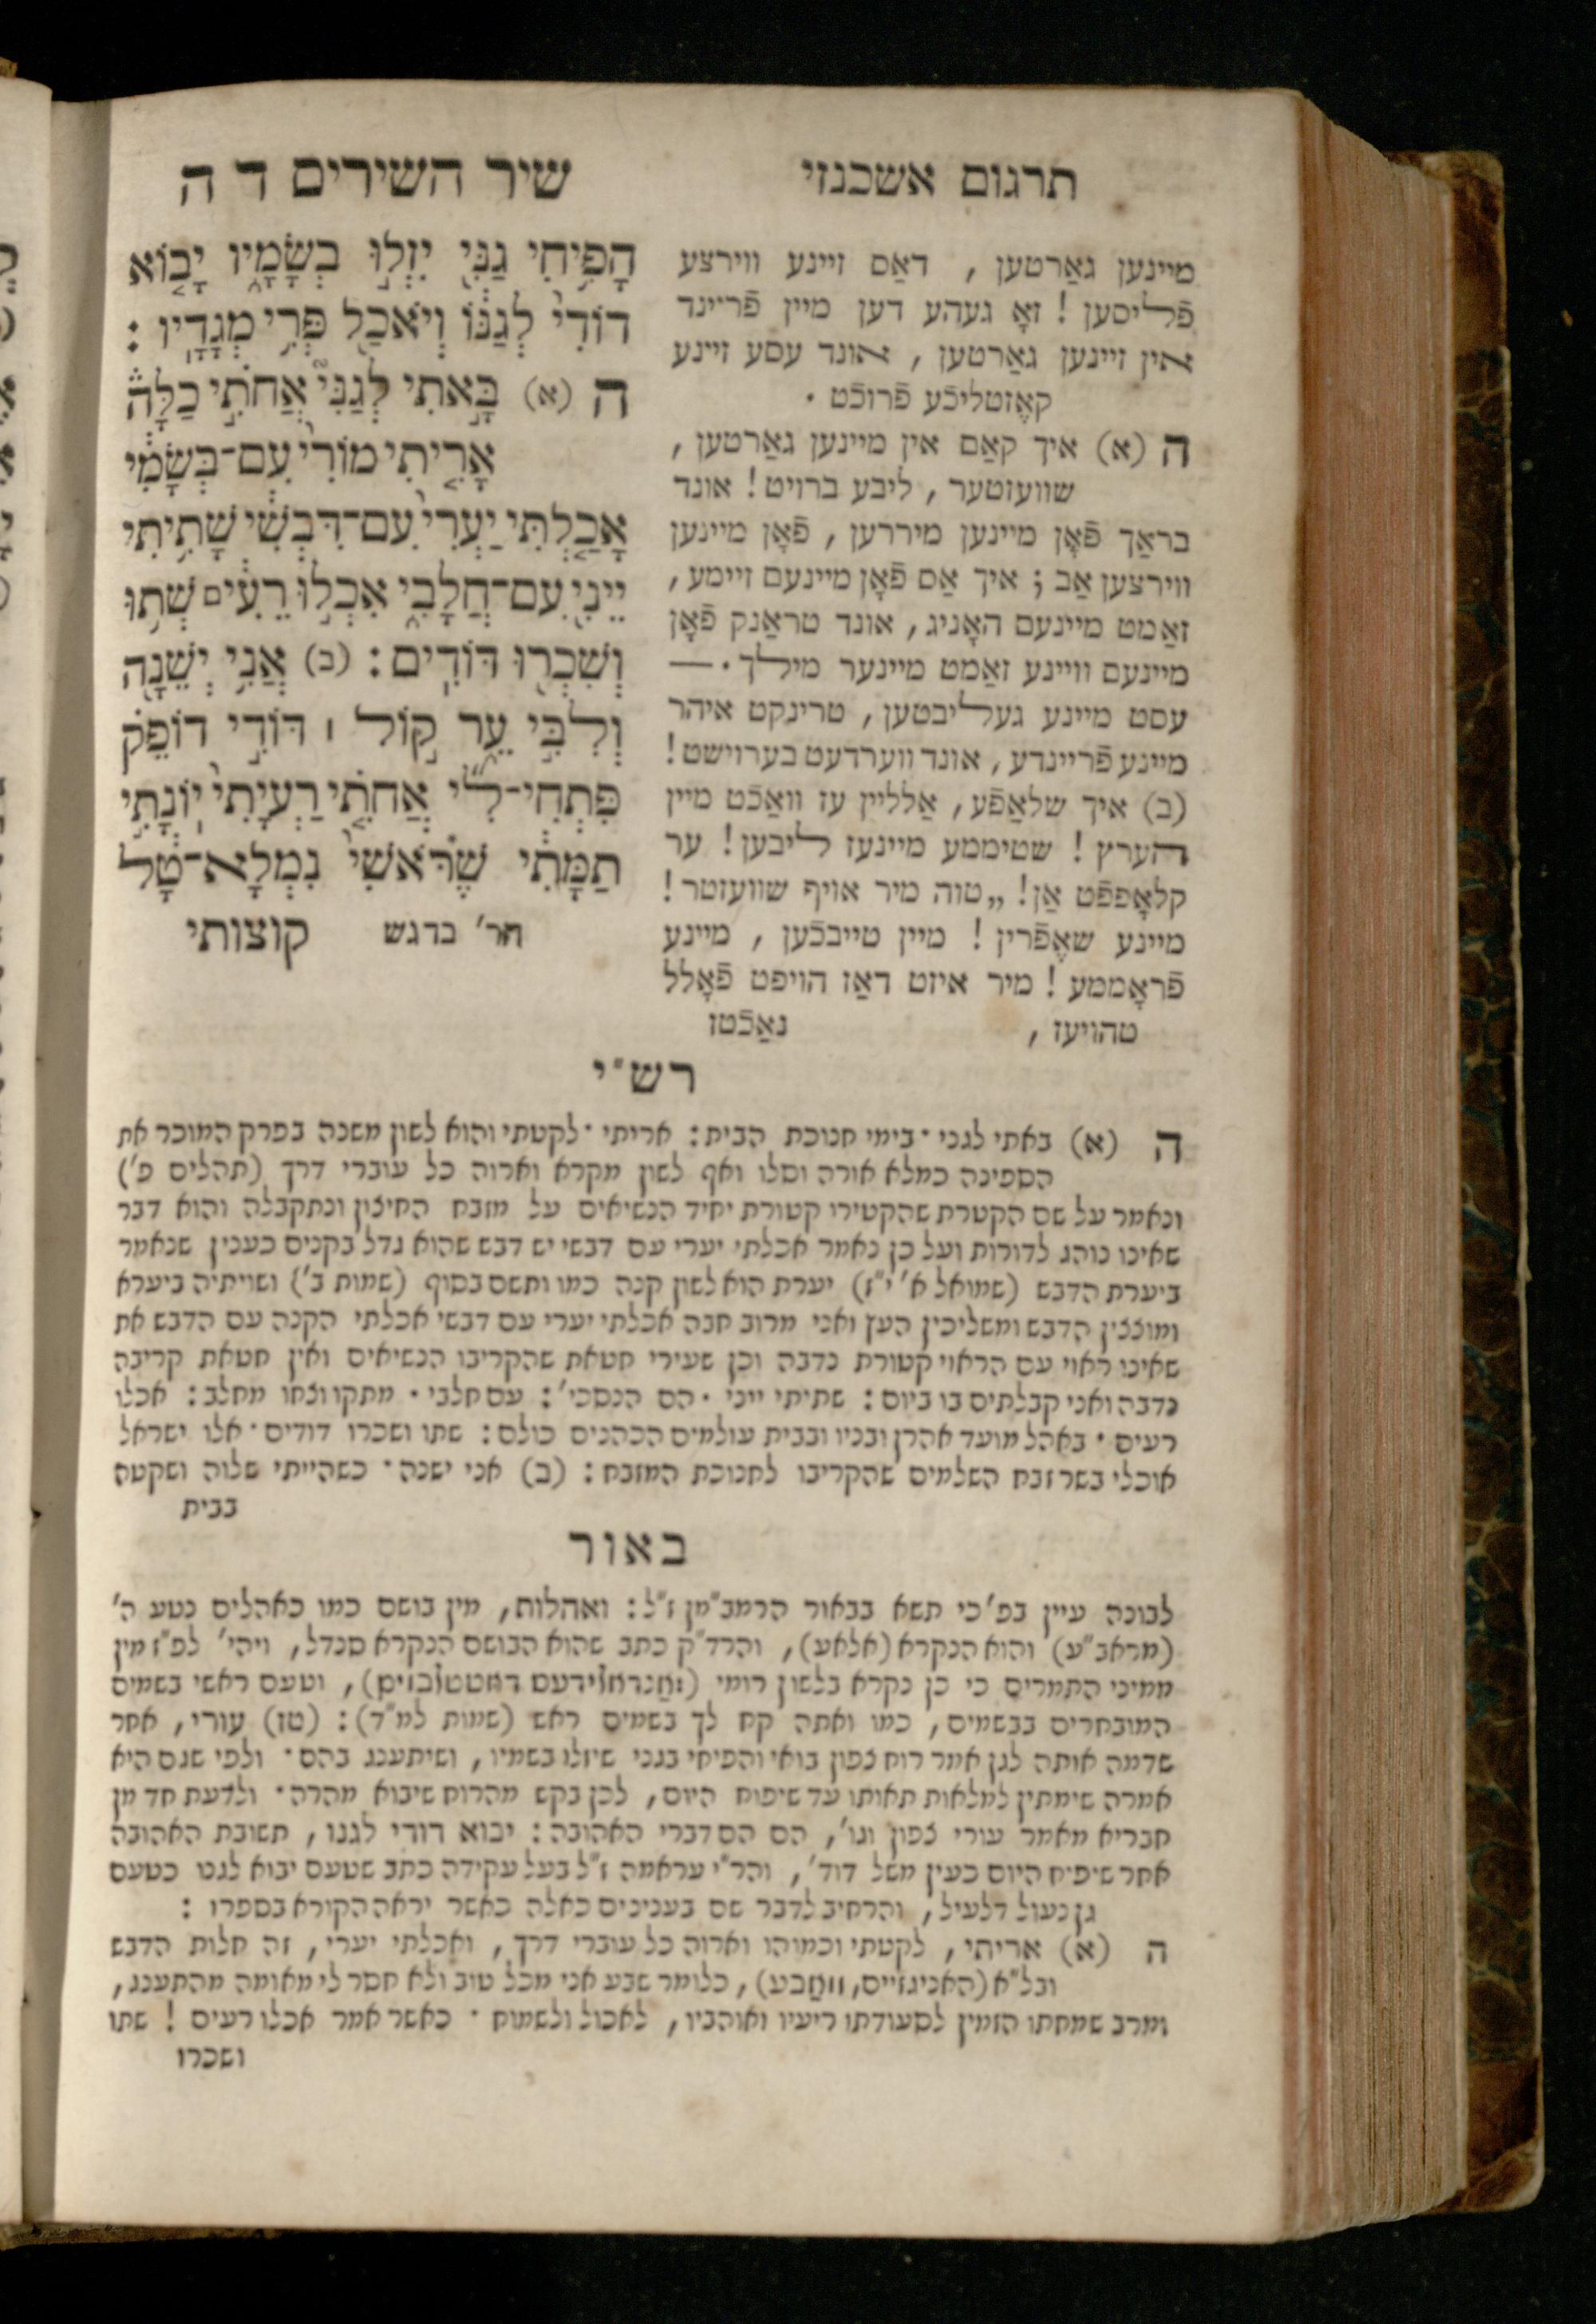 תרגום אשכנזי
שיר השירים ד ה
מיינען גאַרטען , דאַס זיינע ווירצע
פֿליסען ! זאָ געהע דען מיין פֿריינד
אין זיינען גאַרטען , אונד עסע זיינע
קאֶזטליכֿע פֿרוכֿט .
ה (א) איך קאַם אין מיינען גאַרטען ,
שוועזטער , ליבע ברויט ! אונד
בראַך פֿאָן מיינען מיררען , פֿאָן מיינען
ווירצען אַב ; איך אַס פֿאָן מיינעם זיימע ,
זאַמט מיינעם האָניג , אונד טראַנק פֿאָן
מיינעם וויינע זאַמט מיינער מילך . —
עסט מיינע געליבטען , טרינקט איהר
מיינע פֿריינדע , אונד ווערדעט בערוישט !
(ב) איך שלאַפֿע , אַלליין עז וואַכֿט מיין
הערץ ! שטיממע מיינעז ליבען ! ער
קלאָפפֿט אַן ! „טוה מיר אויף שוועזטר !
מיינע שאֶפֿרין ! מיין טייבכֿען , מיינע
פֿראָממע ! מיר איזט דאַז הויפט פֿאָלל
טהויעז ,
נאַכֿטז
הָפִ֥יחִי גַנִּ֖י יִזְּל֣וּ בְשָׂמָ֑יו יָבֹ֤וֹא
דוֹדִי֙ לְגַנּ֔וֹ וְיֹאכַ֖ל פְּרִ֥י מְגָדָֽיו :
ה (א) בָּ֣אתִי לְגַנִּי֮ אֲחֹתִ֣י כַלָּה֒
אָרִ֤יתִי מוֹרִי֙ עִם־בְּשָׂמִ֔י
אָכַ֤לְתִּי יַעְרִי֙ עִם־דִּבְשִׁ֔י שָׁתִ֥יתִי
יֵינִ֖י עִם־חֲלָבִ֑י אִכְל֣וּ רֵעִ֔ים שְׁת֥וּ
וְשִׁכְר֖וּ דּוֹדִֽים : (ב) אֲנִ֥י יְשֵׁנָ֖ה
וְלִבִּ֣י עֵ֑ר ק֣וֹל ׀ דּוֹדִ֣י דוֹפֵ֗ק
פִּתְחִי־לִ֞י אֲחֹתִ֤י רַעְיָתִי֙ יוֹנָתִ֣י
תַמָּתִ֔י שֶׁרֹּאשִׁי֙ נִמְלָא־טָ֔ל
הר׳ בדגש
קוצותי
רש״י
ה (א) באתי לגני · בימי חנוכת הבית : אריתי · לקטתי והוא לשון משנה בפרק המוכר את
הספינה כמלא אורה וסלו ואף לשון מקרא וארוה כל עוברי דרך (תהלים פ׳)
ונאמר על שם הקטרת שהקטירו קטורת יחיד הנשיאים על מזבח החיצון ונתקבלה והוא דבר
שאינו נוהג לדורות ועל כן נאמר אכלתי יערי עם דבשי יש דבש שהוא גדל בקנים כענין שנאמר
ביערת הדבש (שמואל א׳ י״ז) יערת הוא לשון קנה כמו ותשם בסוף (שמות ב׳) ושויתיה ביערא
ומוצצין הדבש ומשליכין העץ ואני מרוב חבה אכלתי יערי עם דבשי אכלתי הקנה עם הדבש את
שאינו ראוי עם הראוי קטורת נדבה וכן שעירי חטאת שהקריבו הנשיאים ואין חטאת קריבה
נדבה ואני קבלתים בו ביום : שתיתי ייני · הם הנסכי׳ : עם חלבי · מתקו וצחו מחלב : אכלו
רעים · באהל מועד אהרן ובניו ובבית עולמים הכהנים כולם : שתו ושכרו דודים · אלו ישראל
אוכלי בשר זבח השלמים שהקריבו לחנוכת המזבח : (ב) אני ישנה · כשהייתי שלוה ושקטה
בבית
באור
לבונה עיין בפ׳ כי תשא בבאור הרמב״מן ז״ל : ואהלות , מין בושם כמו כאהלים נטע ה׳
(מראב״ע) והוא הנקרא (אלאע) , והרד״ק כתב שהוא הבושם הנקרא סנדל , ויהי׳ לפ״ז מין
ממיני התמרים כי כן נקרא בלשון רומי , וטעם ראשי בשמים
המובחרים בבשמים , כמו ואתה קח לך בשמים ראש (שמות למ״ד) : (טז) עורי , אחר
שדמה אותה לגן אמר רוח צפון בואי והפיחי בגני שיזלו בשמיו , ושיתענג בהם · ולפי שגם היא
אמרה שימתין למלאות תאותו עד שיפוח היום , לכן בקש מהרוח שיבוא מהרה · ולדעת חד מן
חבריא מאמר עורי צפון וגו׳ , הם הם דברי האהובה : יבוא דודי לגנו , תשובת האהובה
אחר שיפיח היום כעין משל דוד׳ , והר״י עראמה ז״ל בעל עקידה כתב שטעם יבוא לגנו כטעם
גן נעול דלעיל , והרחיב לדבר שם בענינים כאלה כאשר יראה הקורא בספרו :
ה (א) אריתי , לקטתי וכמוהו וארוה כל עוברי דרך , ואכלתי יערי , זה חלות הדבש
ובל״א , כלומר שבע אני מכל טוב ולא חסר לי מאומה מהתענג ,
ומרב שמחתו הזמין לסעודתו ריעיו ואוהביו , לאכול ולשמוח · כאשר אמר אכלו רעים ! שתו
ושכרו